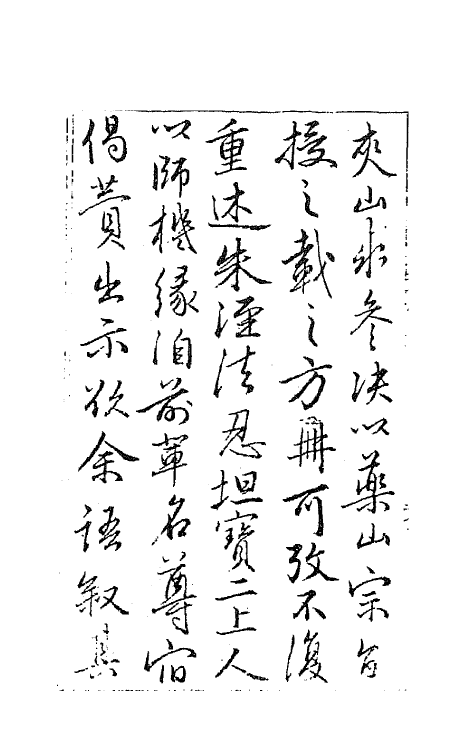 夾山求參决以藥山宗旨
授之載之方冊可攷不復
重述朱涇法忍坦寶二上人
以師機緣洎前輩名尊宿
偈賛出示欲余語叙其